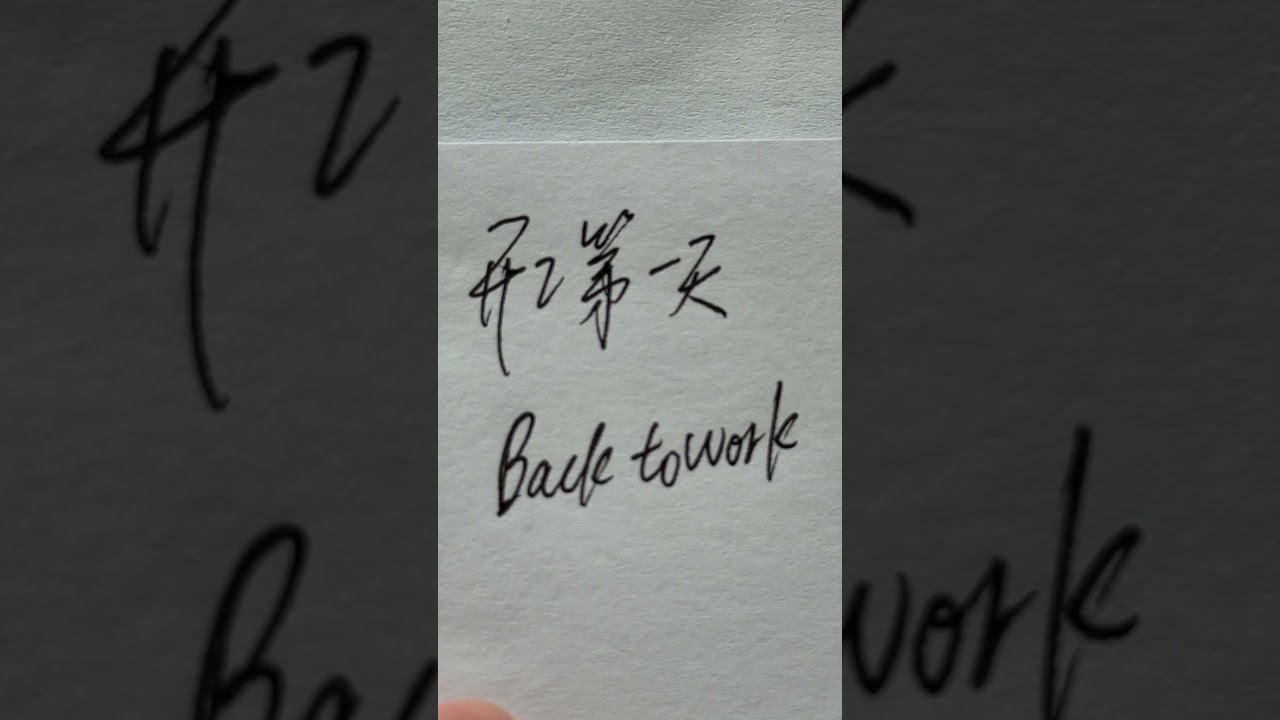 开工第一天
Back to work